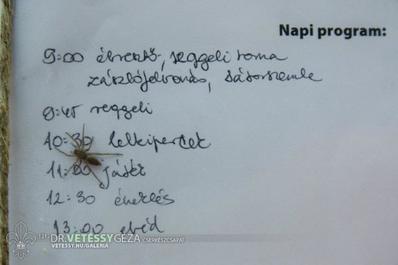 Napi program:
9:00 ébresztő, reggeli torna
zászlófelvonás, sátorszemle
9:45 reggeli
10:30 lelkipercek
11:00 játék
12:30 éneklés
13:00 ebéd
DR. VETÉSSY GÉZA CSERKÉSZCSAPAT
VETESSY.HU/GALERIA